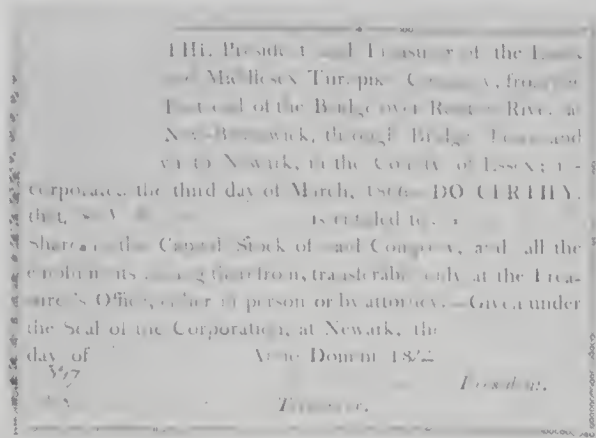 THE President and Treasurer of the Essex
and Middlesex Turnpike Company, from the
East end of the Bridge over Raritan River at
New-Brunswick, through Bridge Town and
to Newark, in the County of Essex; in-
corporated the third day of March, 1806 DO CERTIFY,
that, is entitled to
Share in the Capital Stock of said Company, and all the
emoluments arising therefrom, transferable only at the Trea-
surer's Office, either in person or by attorney.—Given under
the Seal of the Corporation, at Newark, the
day of Anno Domini 182
President.
Treasurer.